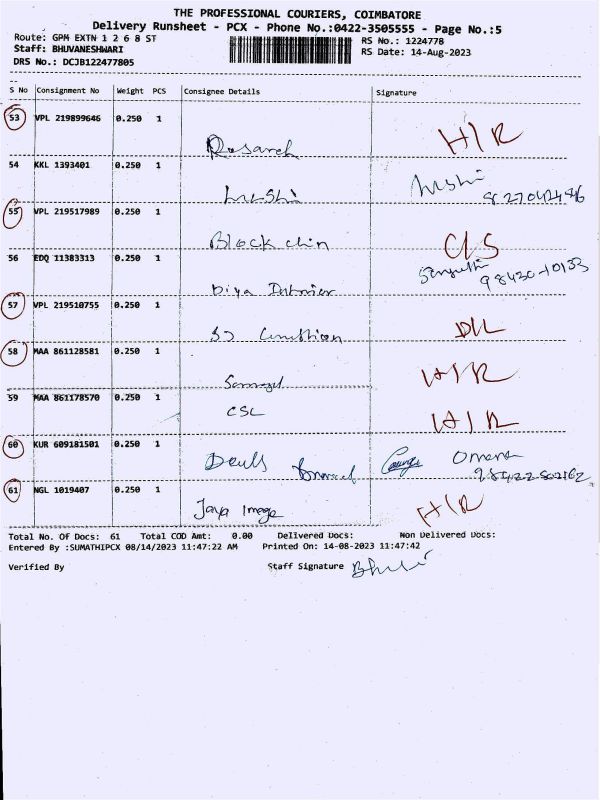 THE PROFESSIONAL COURIERS, COIMBATORE
Delivery Runsheet - PCX - Phone No.:0422-3505555 - Page No.:5
Route: GPM EXTN 1 2 6 8 ST
RS No.: 1224778
Staff: BHUVANESHWARI
RS Date: 14-Aug-2023
DRS No.: DCJB122477805
S No Consignment No Weight PCS Consignee Details Signature
53 VPL 219899646 0.250 1
H/R
54 KKL 1393401 0.250 1
55 VPL 219517989 0.250 1
Block chin
C/S
56 EDQ 11383313 0.250 1
98430-10133
Diya
57 VPL 219510755 0.250 1
D/L
58 MAA 861128581 0.250 1
H/R
59 MAA 861178570 0.250 1
CSL
H/R
60 KUR 609181501 0.250 1
61 NGL 1019407 0.250 1
Jaya Image
H/R
Total No. Of Docs: 61 Total COD Amt: 0.00 Delivered Docs: Non Delivered Docs:
Entered By :SUMATHIPCX 08/14/2023 11:47:22 AM Printed On: 14-08-2023 11:47:42
Verified By Staff Signature